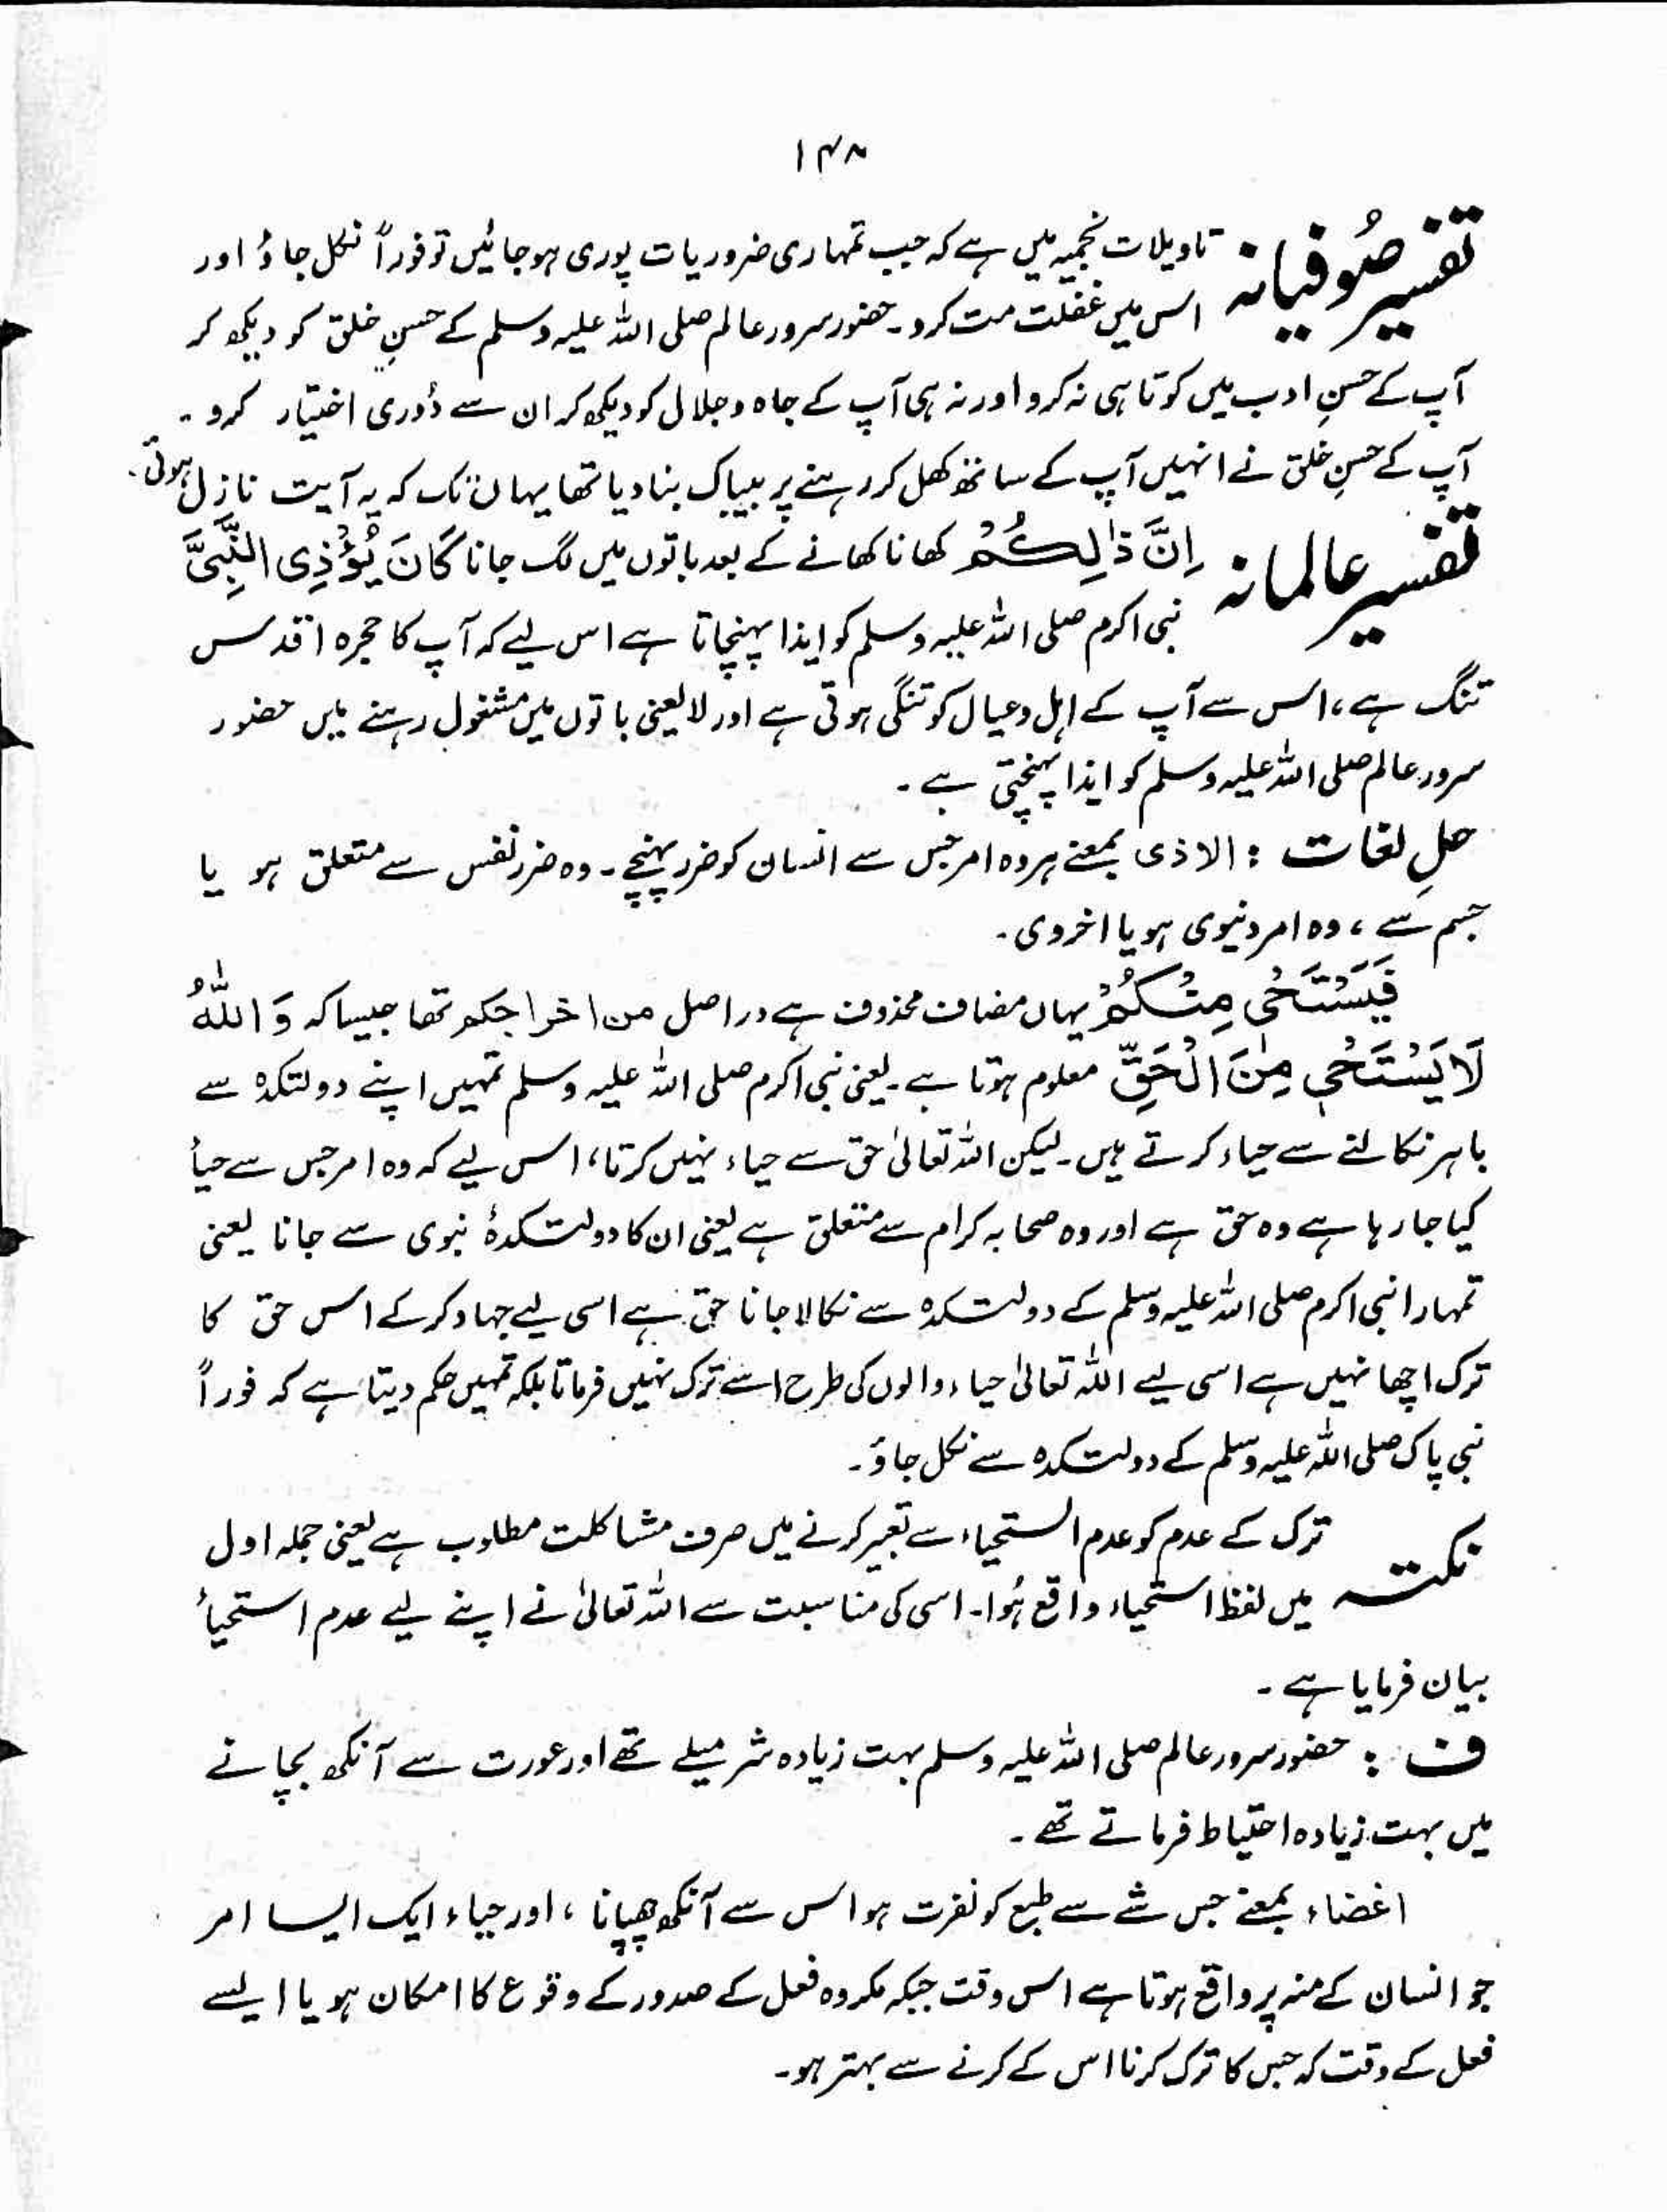 ۱۴۸
تفسیر صُوفیانہ تاویلات نجمیہ میں ہے کہ جب تمہاری ضروریات پوری ہوجائیں تو فوراً نکل جاؤ اور
اس میں غفلت مت کرو۔ حضور سرور عالم صلی اللہ علیہ وسلم کے حسنِ خلق کو دیکھ کر
آپ کے حسنِ ادب میں کوتاہی نہ کرو اور نہ ہی آپ کے جاہ و جلال کو دیکھ کر ان سے دُوری اختیار کرو۔
آپ کے حسنِ خلق نے انہیں آپ کے ساتھ کھل کر رہنے پر بیباک بنا دیا تھا یہاں تک کہ یہ آیت نازل ہوئی۔
تفسیر عالمانہ اِنَّ ذٰلِكُمْ کھانا کھانے کے بعد باتوں میں لگ جانا كَانَ يُؤْذِى النَّبِىَّ
نبی اکرم صلی اللہ علیہ وسلم کو ایذا پہنچاتا ہے اس لیے کہ آپ کا حجرہ اقدس
تنگ ہے، اس سے آپ کے اہل و عیال کو تنگی ہوتی ہے اور لایعنی باتوں میں مشغول رہنے میں حضور
سرور عالم صلی اللہ علیہ وسلم کو ایذا پہنچتی ہے۔
حلِ لغات : الاذی بمعنے ہر وہ امر جس سے انسان کو ضرر پہنچے۔ وہ ضرر نفس سے متعلق ہو یا
جسم سے، وہ امر دنیوی ہو یا اخروی۔
فَيَسْتَحْىٖ مِنْكُمْ یہاں مضاف محذوف ہے دراصل من اخراجکم تھا جیسا کہ وَاللّٰهُ
لَا يَسْتَحْىٖ مِنَ الْحَقِّ معلوم ہوتا ہے۔ یعنی نبی اکرم صلی اللہ علیہ وسلم تمہیں اپنے دولتکدہ سے
باہر نکالنے سے حیاء کرتے ہیں۔ لیکن اللہ تعالیٰ حق سے حیاء نہیں کرتا، اس لیے کہ وہ امر جس سے حیأ
کیا جا رہا ہے وہ حق ہے اور وہ صحابہ کرام سے متعلق ہے یعنی ان کا دولت کدۂ نبوی سے جانا یعنی
تمہارا نبی اکرم صلی اللہ علیہ وسلم کے دولت کدہ سے نکالا جانا حق ہے اسی لیے جہاد کر کے اس حق کا
ترک اچھا نہیں ہے اسی لیے اللہ تعالیٰ حیاء والوں کی طرح اسے ترک نہیں فرماتا بلکہ تمہیں حکم دیتا ہے کہ فوراً
نبی پاک صلی اللہ علیہ وسلم کے دولت کدہ سے نکل جاؤ۔
نکتہ ترک کے عدم کو عدم استحیاء سے تعبیر کرنے میں صرف مشاکلت مطلوب ہے یعنی جملہ اول
میں لفظ استحیاء واقع ہُوا۔ اسی کی مناسبت سے اللہ تعالیٰ نے اپنے لیے عدم استحیأ
بیان فرمایا ہے۔
ف : حضور سرور عالم صلی اللہ علیہ وسلم بہت زیادہ شرمیلے تھے اور عورت سے آنکھ بچانے
میں بہت زیادہ احتیاط فرماتے تھے۔
اغضاء بمعنے جس شے سے طبع کو نفرت ہو اس سے آنکھ چھپانا، اور حیاء ایک ایسا امر
جو انسان کے منہ پر واقع ہوتا ہے اس وقت جبکہ مکروہ فعل کے صدور کے وقوع کا امکان ہو یا ایسے
فعل کے وقت کہ جس کا ترک کرنا اس کے کرنے سے بہتر ہو۔